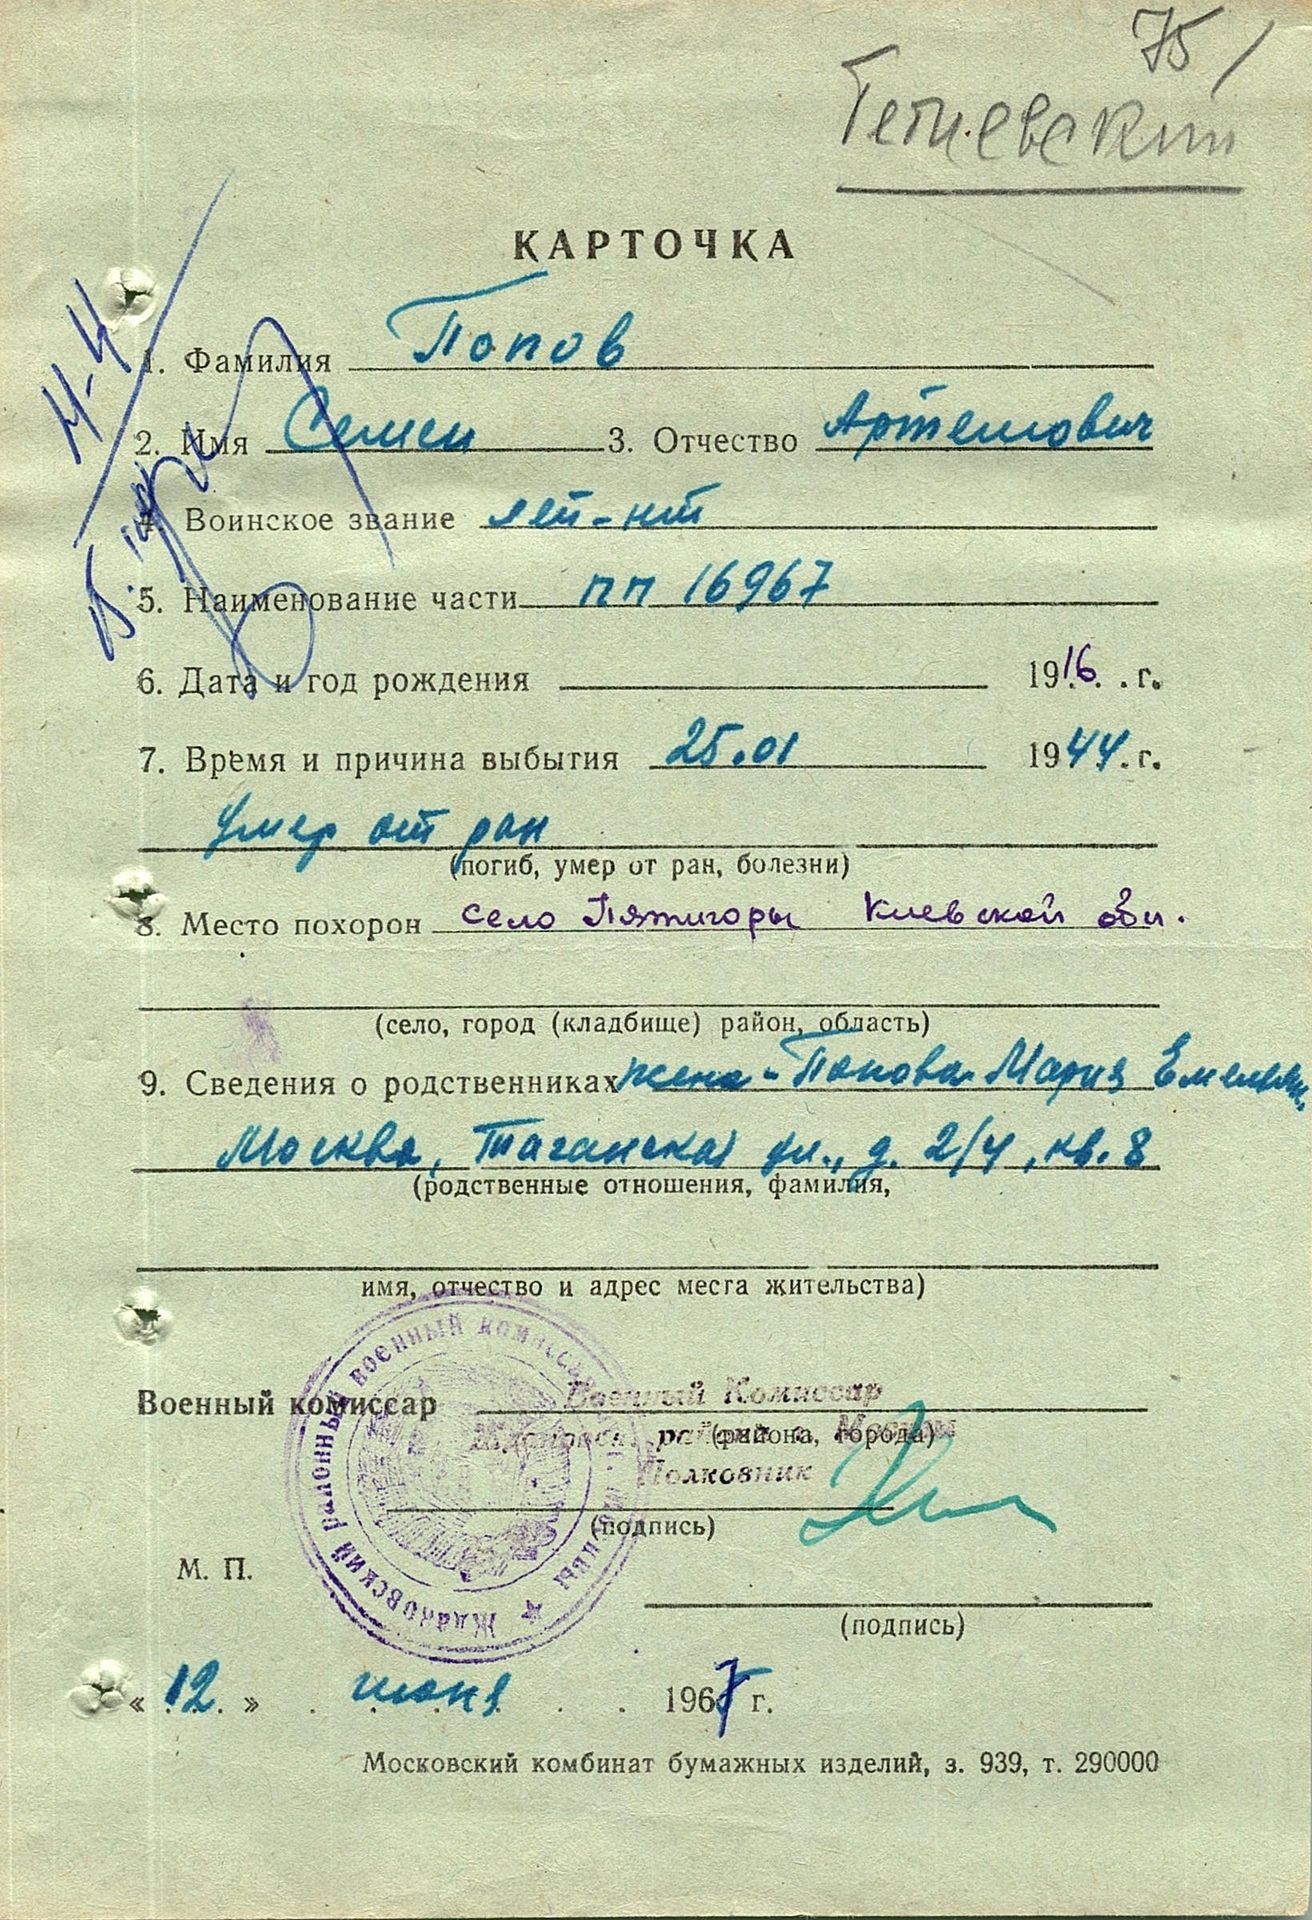 75
КАРТОЧКА
1. Фамилия Попов
2. Имя Семен 3. Отчество Артемович
4. Воинское звание лей-нт
5. Наименование части пп 16967
6. Дата и год рождения 1916. . г.
7. Время и причина выбытия 25.01 1944. г.
умер от ран
(погиб, умер от ран, болезни)
8. Место похорон село Пятигоры Киевской обл.
(село, город (кладбище) район, область)
9. Сведения о родственниках жена - Попова Мария Емельян.
Москва, Таганская ул., д. 2/4, кв. 8
(родственные отношения, фамилия,
имя, отчество и адрес места жительства)
Военный комиссар Военный Комиссар
(района, города)
Ждановск. района г. Москвы
Полковник
(подпись)
М. П.
Ждановский районный военный комиссариат г. Москвы
(подпись)
« 12. » июня 1967 г.
Московский комбинат бумажных изделий, з. 939, т. 290000